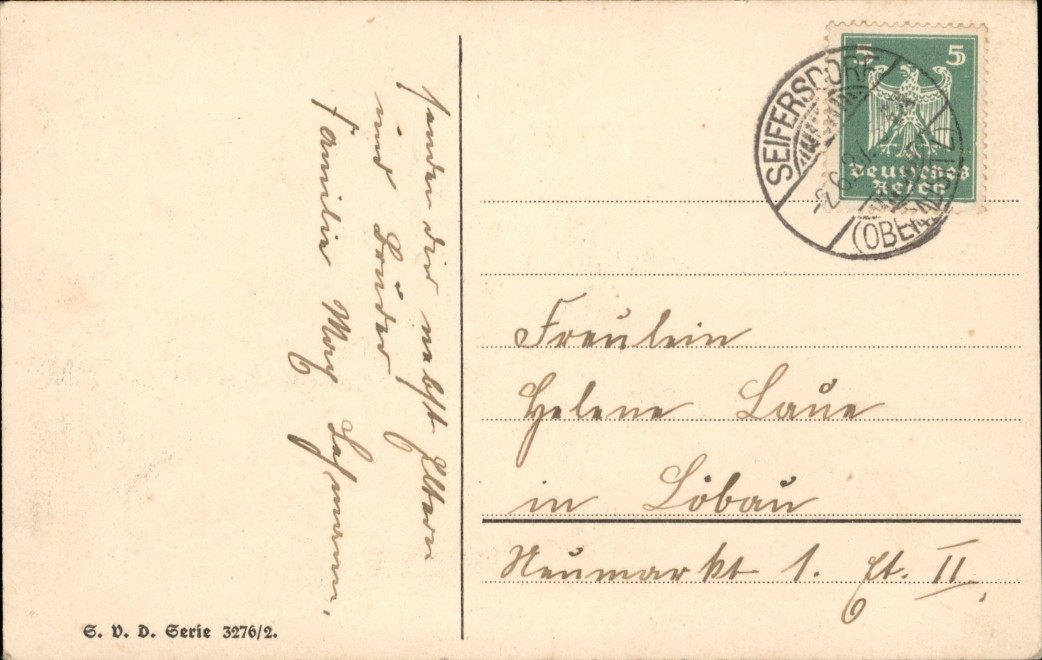 senden dir nebst Eltern
und Bruder,
Familie Max Lehmann.
5 5
Deutsches
Reich
SEIFERSDORF
(OBERLAUSITZ)
Fräulein
Helene Laue
in Löbau
Neumarkt 1. Et. II.
S. V. D. Serie 3276/2.